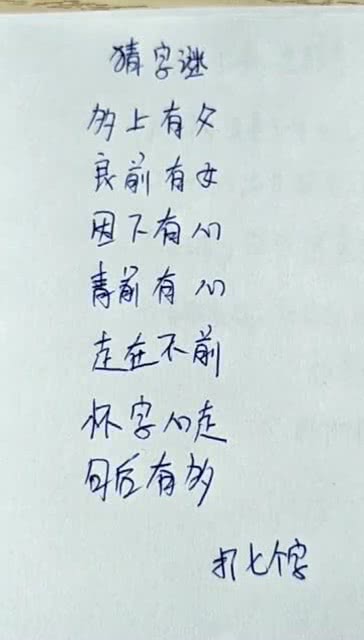 猜字谜
多上有父
良前有女
因下有心
青前有心
走在不前
怀字心走
句后有多
打七个字